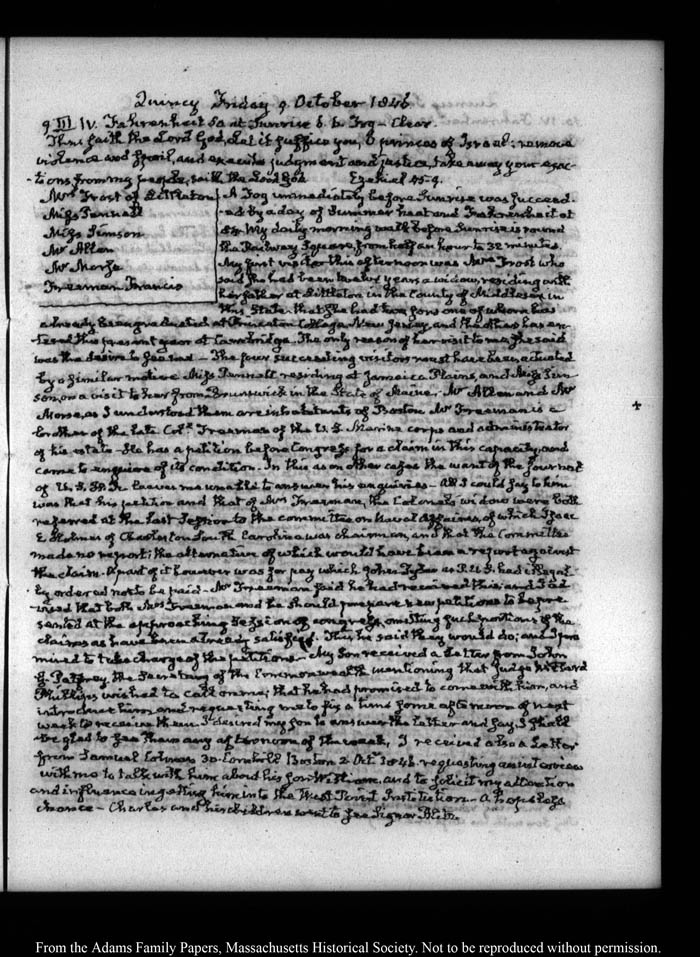 Quincy Friday 9 October 1846
9 III IV. Fahrenheit 50 at Sunrise Fog - Clear
Thus saith the Lord God, Let it suffice you, O princes of Israel: remove
violence and spoil, and execute judgment and justice, take away your exac-
-tions from my people, saith the Lord God. Ezekiel 45-9.
Mrs Frost of Littleton
Miss Pennell
Miss Simson
Mr Allen
Mr Morse
Freeman Francis
A Fog immediately before Sunrise was succeed-
-ed by a day of Summer heat and Fahrenheit at
My daily morning walk before Sunrise is round
the Railway Square, from half an hour to 32 minutes.
My first visitor this afternoon was Mrs Frost who
said she had been twelve years a widow, residing with
her father at Littleton in the County of Middlesex in
this State. that she had two sons one of whom has
already been graduated at Princeton College New Jersey, and the other has en-
tered this present year at Cambridge. The only reason of her visit to me she said
was the desire to see me - The four succeeding visitors must have been actuated
by a similar motive Miss Pennell residing at Jamaica Plains, and Miss Sim
son, on a visit to her from Brunswick in the State of Maine. Mr Allen and Mr
Morse, as I understood them are inhabitants of Boston Mr Freeman is a
brother of the late Coll Freeman of the U.S. Marine corps and administrator
of his estate - He has a petition before Congress for a claim in this capacity, and
came to enquire of its condition. In this as in other cases the want of the Journal
of U.S. H.R. leaves me unable to answer his enquiries - All I could say to him
was that his petition and that of Mrs Freeman, the Colonel's widow were both
referred at the last Session to the committee on Naval Affairs, of which Isaac
E. Holmes of Charleston South Carolina was chairman, and that the Committee
made no report; the alternative of which would have been a report against
the claim. A part of it however was for pay which John Tyler as P.U.S. had illegal-
ly ordered not to be paid - Mr Freeman said he had received this; and I ad
vised that both Mrs Freeman and he should prepare new petitions to be pre
sented at the approaching Session of Congress, omitting such portions of the
claims as have been already satisfied. This he said they would do; and I pro
mised to take charge of the petitions - My Son received a Letter from John
G. Palfrey the Secretary of the Commonwealth mentioning that Judge Willard
Phillips wished to call on me; that he had promised to come with him, and
introduce him and requesting me to fix a time some afternoon of next
week to receive them. I desired my son to answer the letter and say I shall
be glad to see them any afternoon of the week, I received also a Letter
from Samuel Colman 30. Cornhill Boston 2 Oct 1846. requesting an interview
with me to talk with him about his son and to solicit my attention
and influence in getting him into the West Point Institution - A hopeless
chance - Charles and his children went to see Signor Blitz.
From the Adams Family Papers, Massachusetts Historical Society. Not to be reproduced without permission.